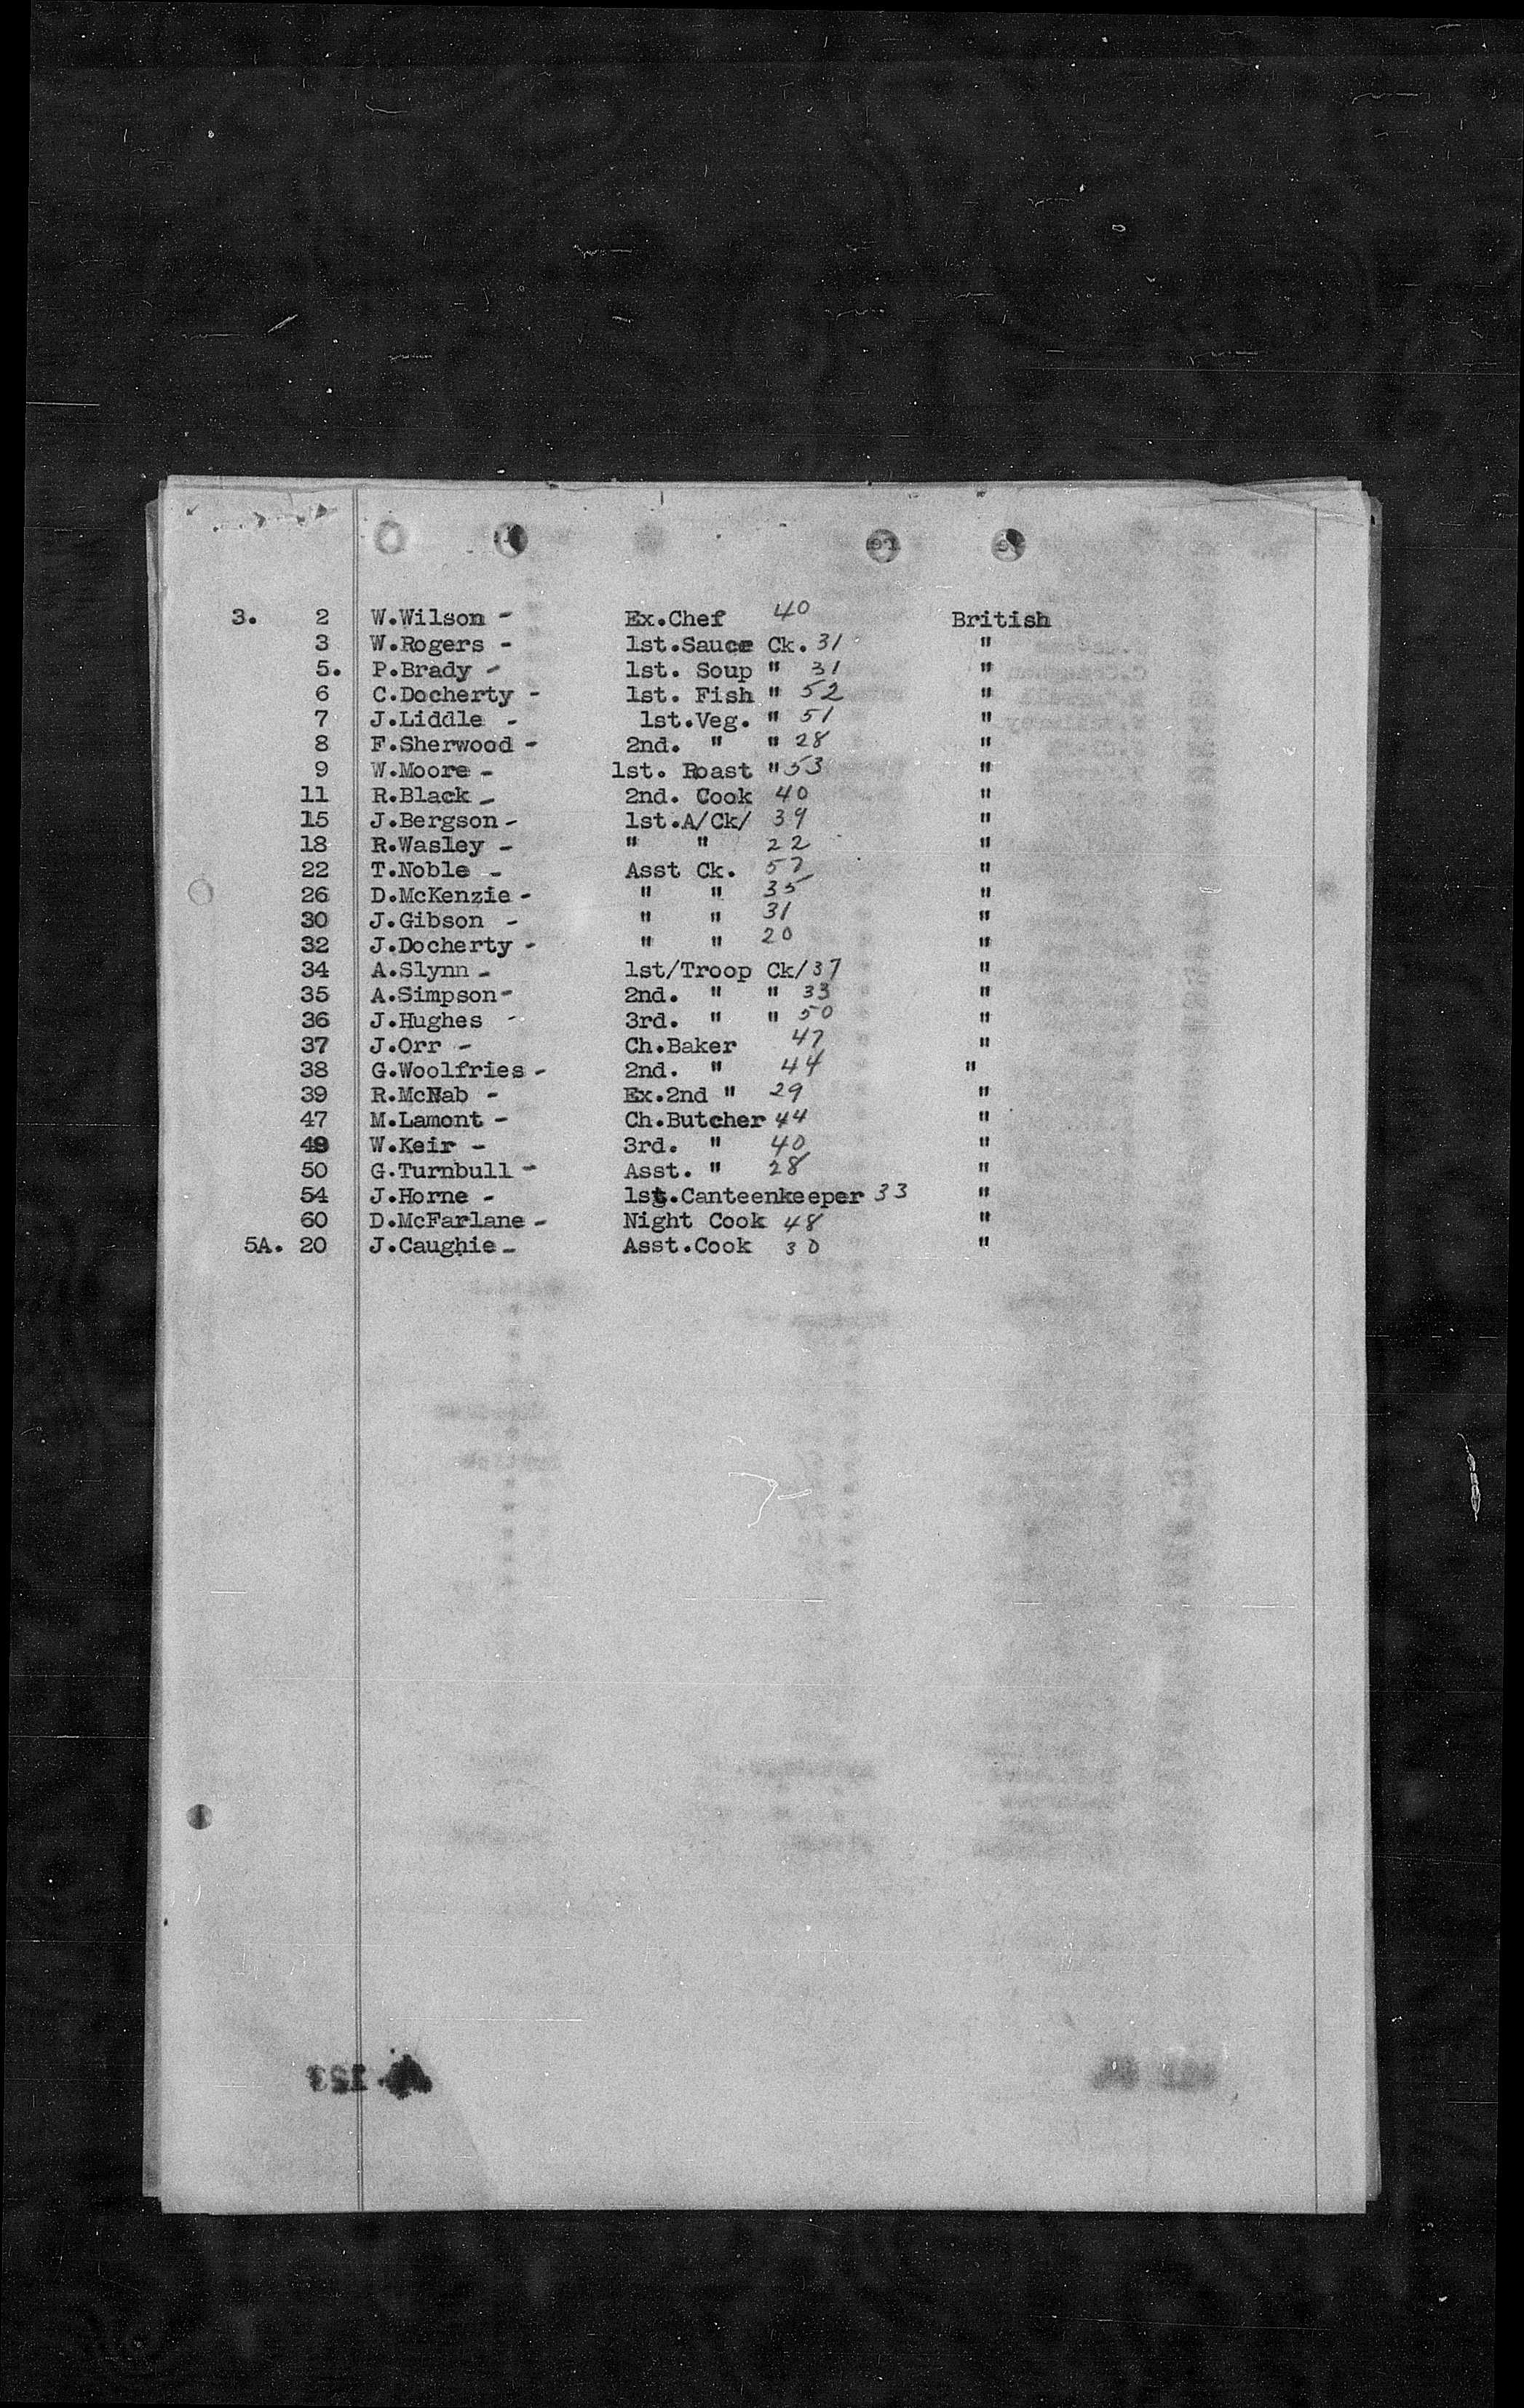 3. 2 W.Wilson - Ex.Chef 40 British
3 W.Rogers - 1st.Sauce Ck. 31 "
5. P.Brady - 1st. Soup " 31 "
6 C.Docherty - 1st. Fish " 52 "
7 J.Liddle - 1st.Veg. " 51 "
8 F.Sherwood - 2nd. " " 28 "
9 W.Moore - 1st. Roast " 53 "
11 R.Black - 2nd. Cook 40 "
15 J.Bergson - 1st.A/Ck/ 39 "
18 R.Wasley - " " 22 "
22 T.Noble - Asst Ck. 57 "
26 D.McKenzie - " " 35 "
30 J.Gibson - " " 31 "
32 J.Docherty - " " 20 "
34 A.Slynn - 1st/Troop Ck/ 37 "
35 A.Simpson - 2nd. " " 33 "
36 J.Hughes - 3rd. " " 50 "
37 J.Orr - Ch.Baker 47 "
38 G.Woolfries - 2nd. " 44 "
39 R.McNab - Ex.2nd " 29 "
47 M.Lamont - Ch.Butcher 44 "
49 W.Keir - 3rd. " 40 "
50 G.Turnbull - Asst. " 28 "
54 J.Horne - 1st.Canteenkeeper 33 "
60 D.McFarlane - Night Cook 48 "
5A. 20 J.Caughie - Asst.Cook 30 "